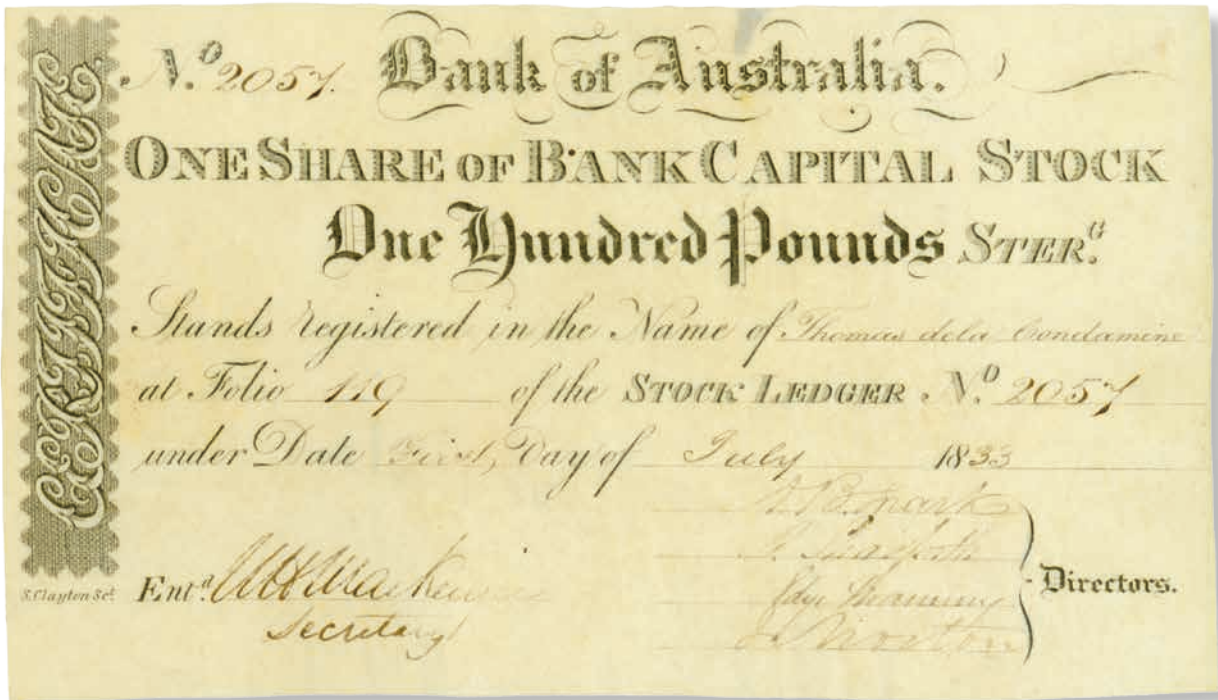 CERTIFICATE
N.º 2057. Bank of Australia.
ONE SHARE OF BANK CAPITAL STOCK
One Hundred Pounds STER.G
Stands registered in the Name of Thomas de la Condamine
at Folio 119 of the STOCK LEDGER N.º 2057
under Date First, Day of July 1833
Ent.d Secretary
Directors.
S. Clayton Sct.